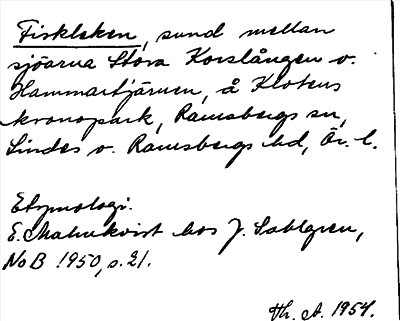 Fiskleken, sund mellan
sjöarna Stora Korslången o.
Hammartjärnen, å Klotens
kronopark, Ramsbergs sn,
Lindes o. Ramsbergs hd, Ör. l.
Etymologi.
E. Malmkvist hos J. Sahlgren,
NoB 1950, s. 21.
Hh. A. 1954.